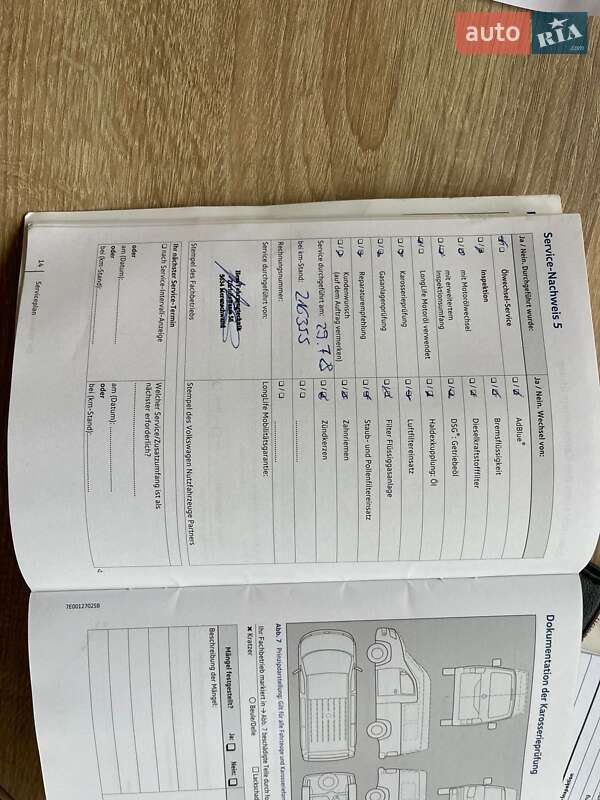 auto RIA .com
Service-Nachweis 5
Ja / Nein. Durchgeführt wurde:
Ölwechsel-Service
Inspektion
mit Motorölwechsel
mit erweitertem
Inspektionsumfang
LongLife Motoröl verwendet
Karosserieprüfung
Gasanlagenprüfung
Reparaturempfehlung
Kundenwunsch
(auf dem Auftrag vermerken)
Service durchgeführt am:
bei km-Stand: 216355
Rechnungsnummer:
Service durchgeführt von:
Stempel des Fachbetriebs
Ihr nächster Service-Termin
nach Service-Intervall-Anzeige
oder
am (Datum):
oder
bei (km-Stand):
14 Serviceplan
Ja / Nein. Wechsel von:
AdBlue®
Bremsflüssigkeit
Dieselkraftstofffilter
DSG®: Getriebeöl
Haldexkupplung: Öl
Luftfiltereinsatz
Filter Flüssiggasanlage
Staub- und Pollenfiltereinsatz
Zahnriemen
Zündkerzen
LongLife Mobilitätsgarantie:
Stempel des Volkswagen Nutzfahrzeuge Partners
Welcher Service/Zusatzumfang ist als
nächster erforderlich?
am (Datum):
oder
bei (km-Stand):
7E0012702SB
Dokumentation der Karosserieprüfung
Abb. 7 Prinzipdarstellung: Gilt für alle Fahrzeuge und
Ihr Fachbetrieb markiert in → Abb. 7 beschädigte Teile durch
✖ Kratzer
○ Beule/Delle
Mängel festgestellt?
Ja:
Nein:
Beschreibung der Mängel: